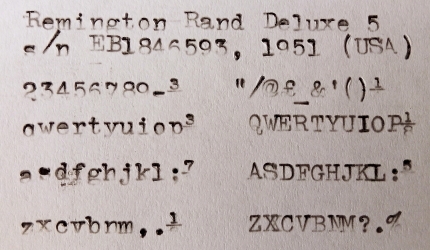 Remington Rand Deluxe 5
s/n EB1846593, 1951 (USA)
23456789-³ "/@£_&'()½
qwertyuiop³ QWERTYUIOP½
asdfghjkl:⁷ ASDFGHJKL:⁵
zxcvbnm,.½ ZXCVBNM?.%